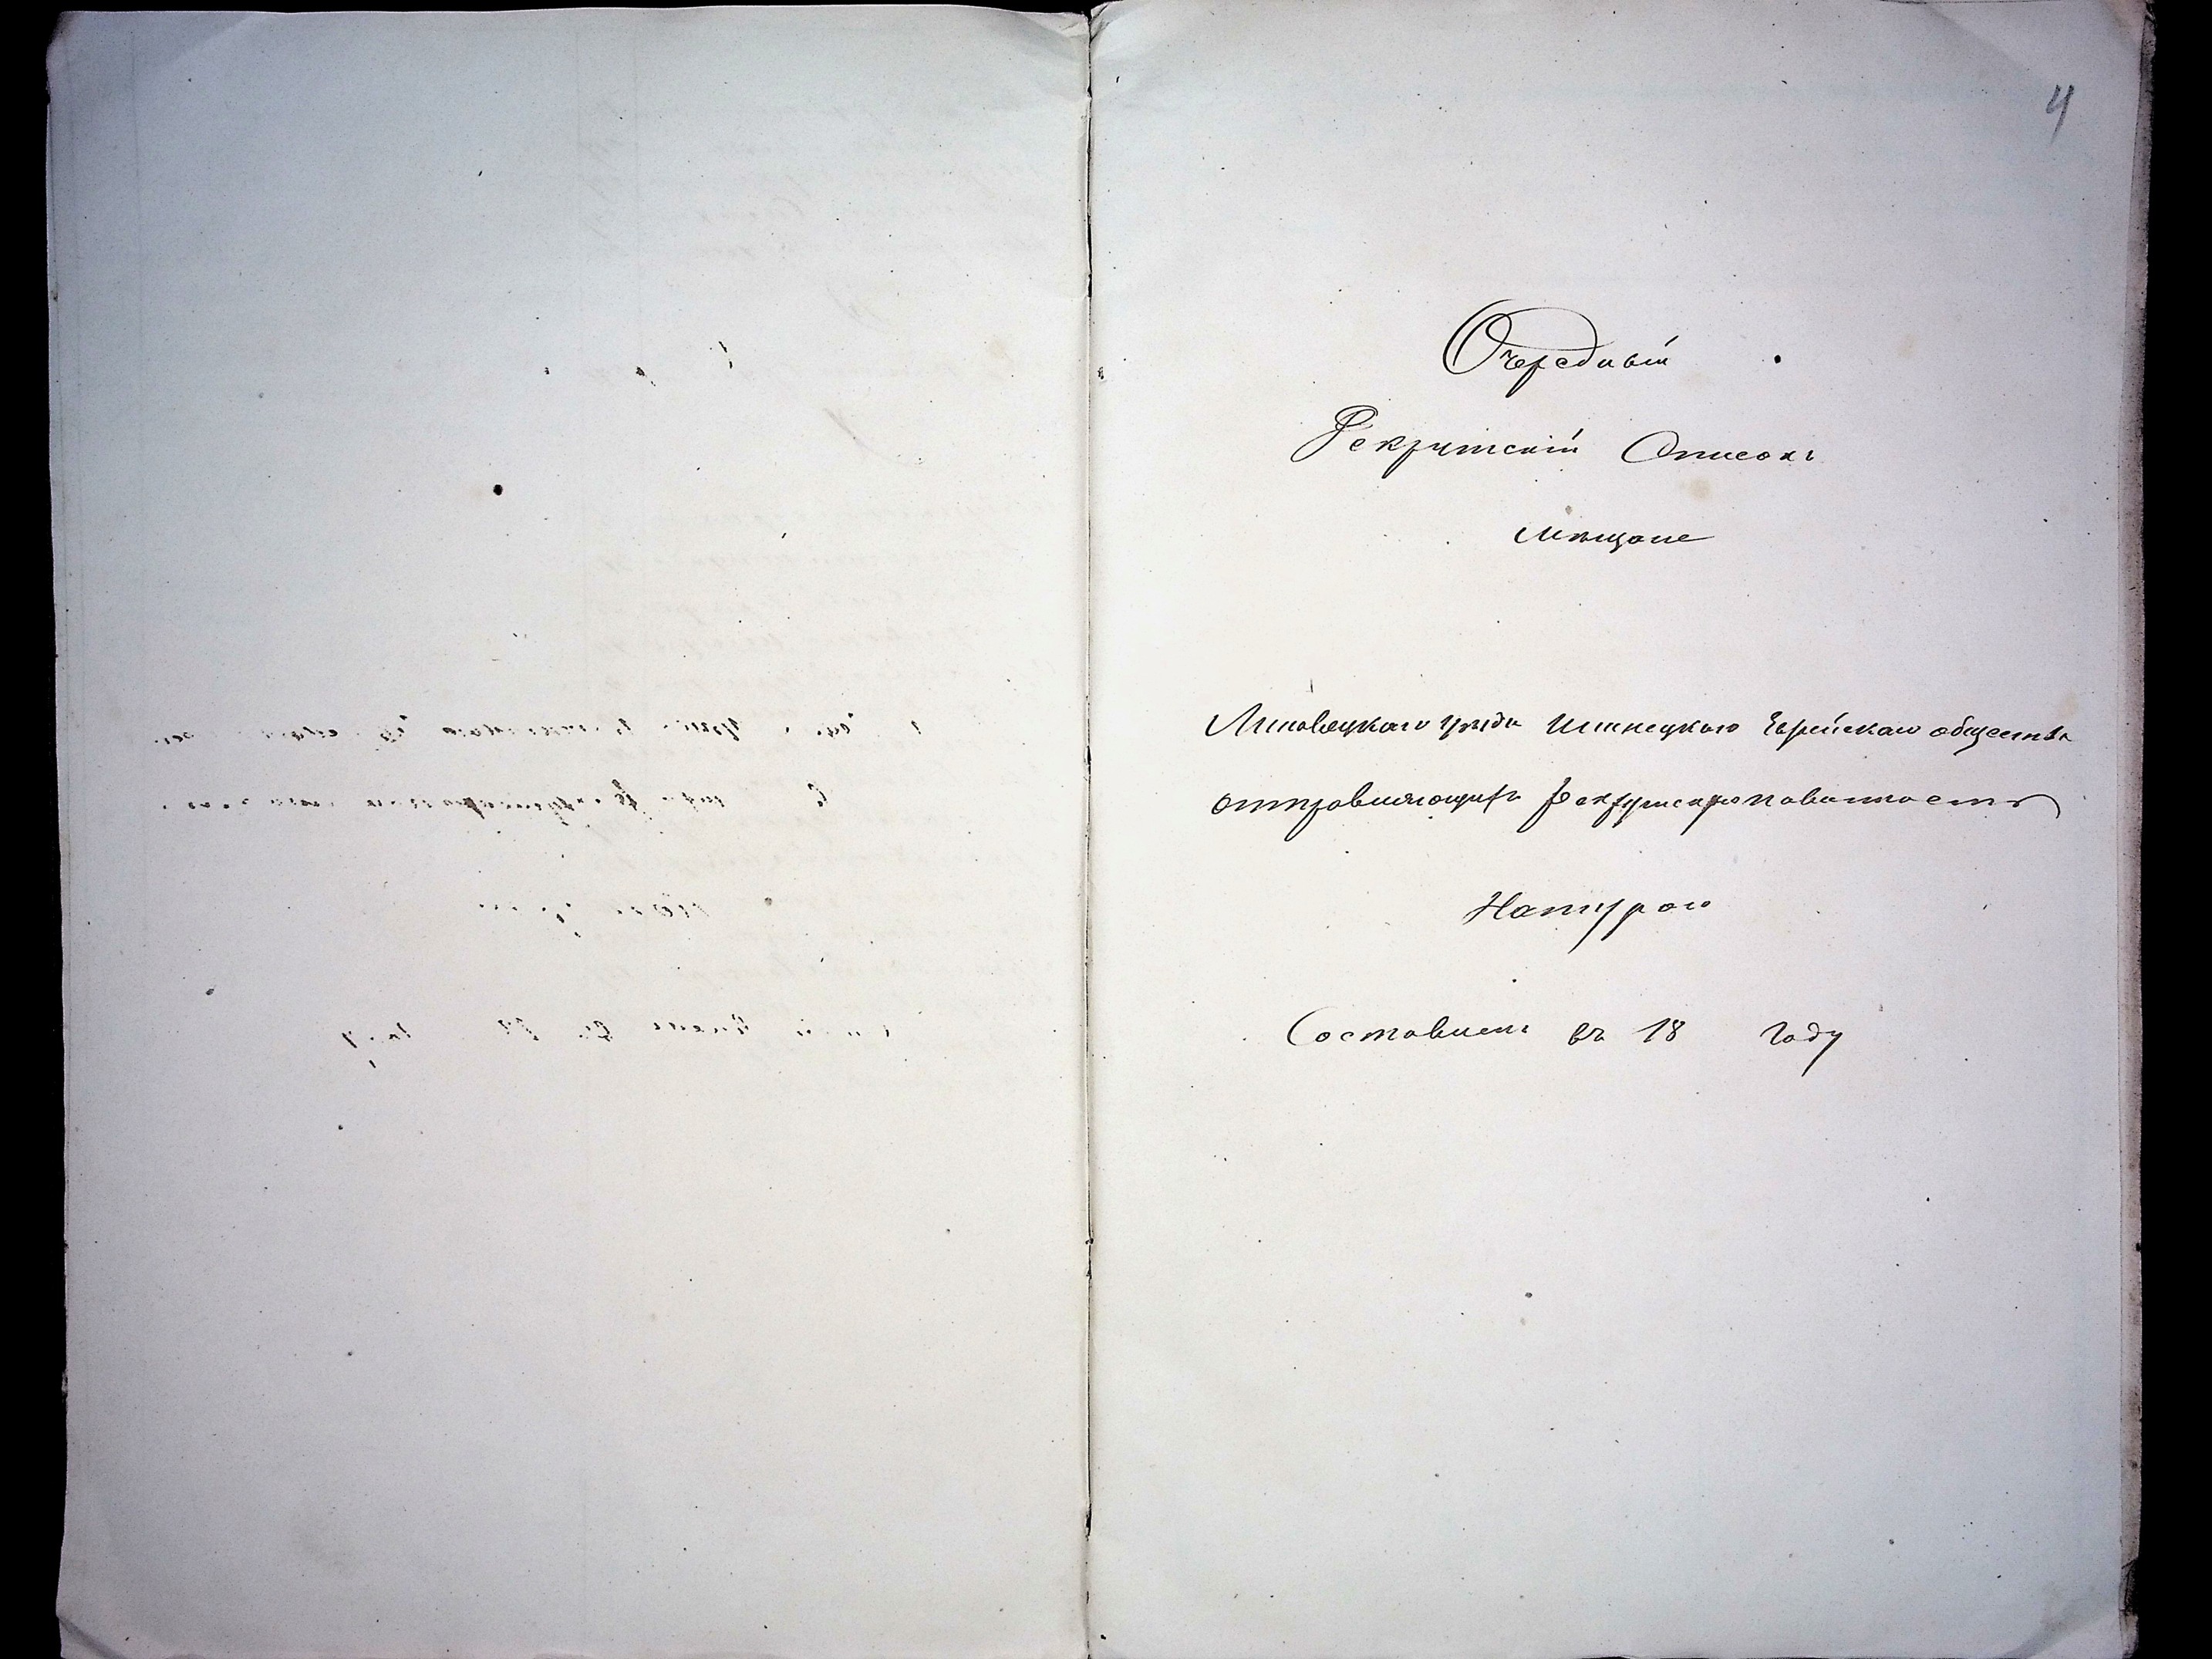 4
Очередный
Рекрутскій Списокъ
Мѣщане
Липовецкаго уѣзда Илинецкаго Еврейскаго общества
отправляющихъ рекрутскую повинность
Натурою
Составленъ въ 18 Году